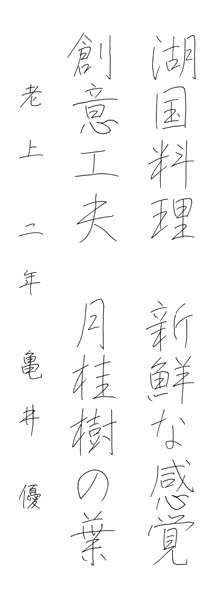 湖国料理 新鮮な感覚
創意工夫 月桂樹の葉
老上 二年 亀井 優